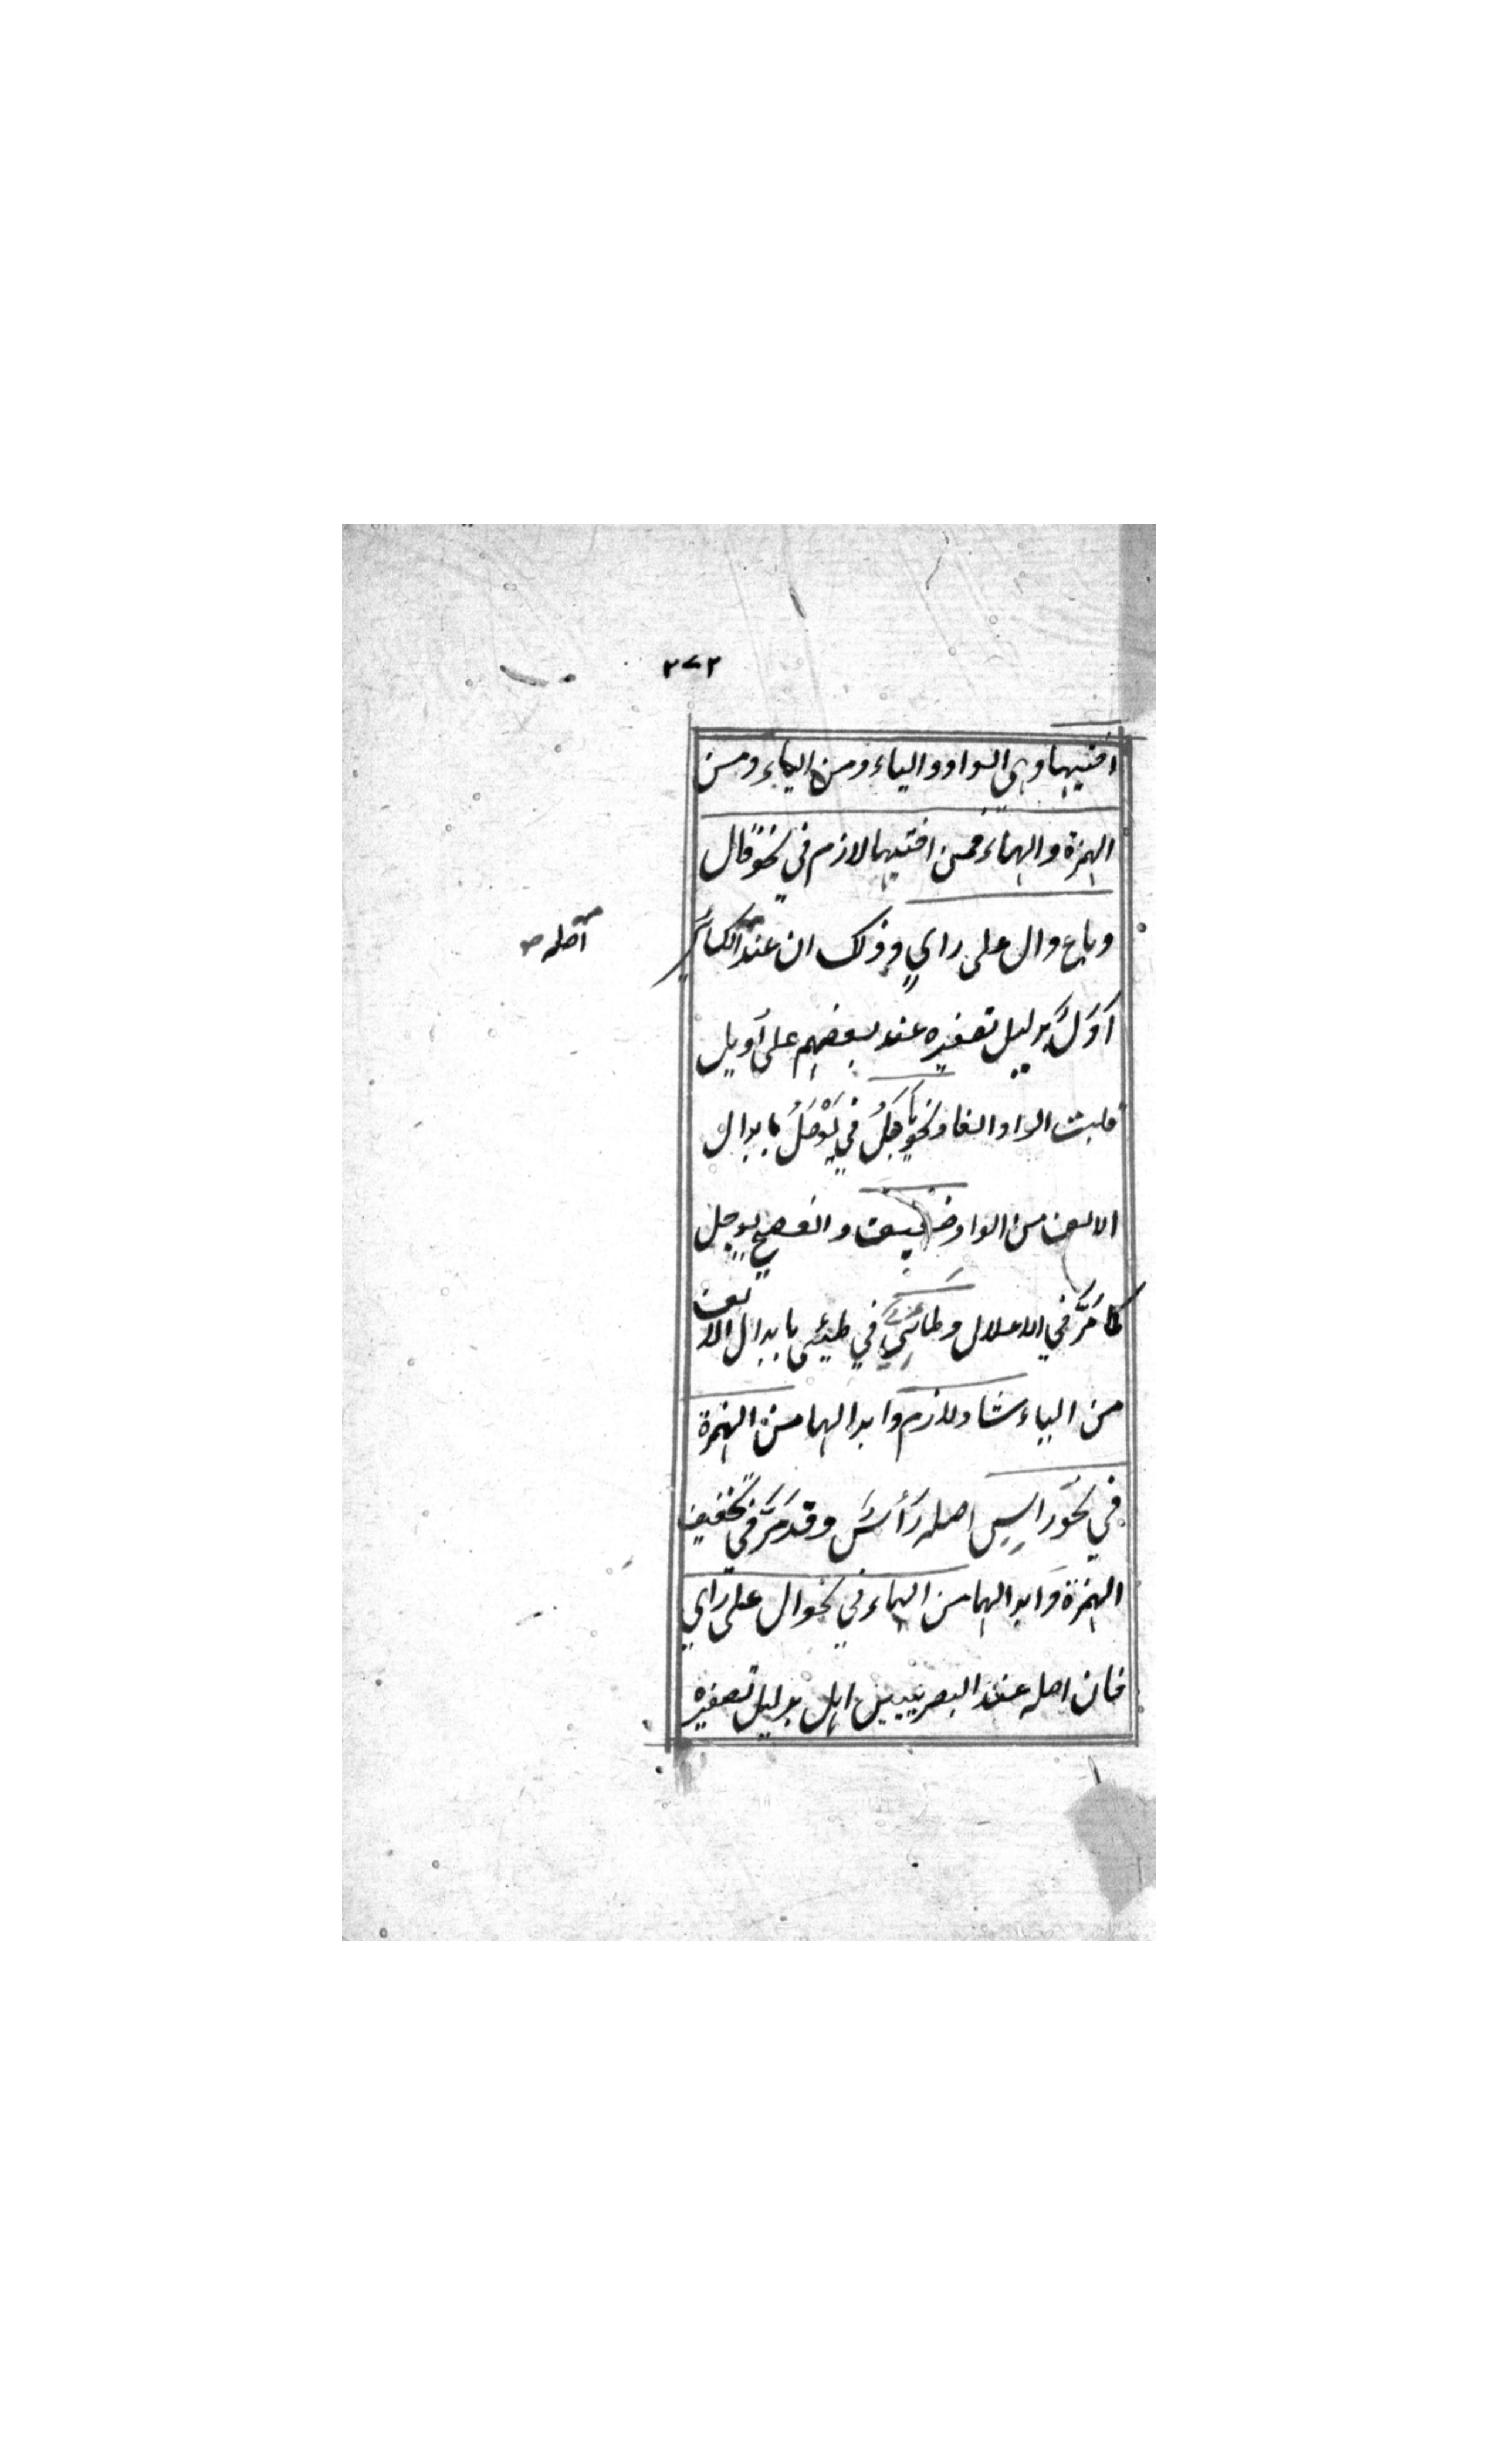 ٢٧٢
اختيها وهي الواو والياء ومن الياء ومن
الهمزة والهاء فمن اختيها لازم في نحو قال
وباع وال على راي وذلك ان عند الكسائي
اصله صح
أَوَلٌ بدليل تصغيره عند بعضهم على أويل
قلبت الواو الفا ونحو يَاجَلُ في يَوْجَلُ بابدال
الالف من الواو ضعيف والفصيح يوجل
كما مَرَّ في الاعلال وطائي في طيئي بابدال الالف
من الياء شاذ لازم وابدالها من الهمزة
في نحو راس اصله رَأْس وقد مَرَّ في تخفيف
الهمزة وابدالها من الهاء في نحو ال على راي
فان اصله عند البصريين اهل بدليل تصغيره